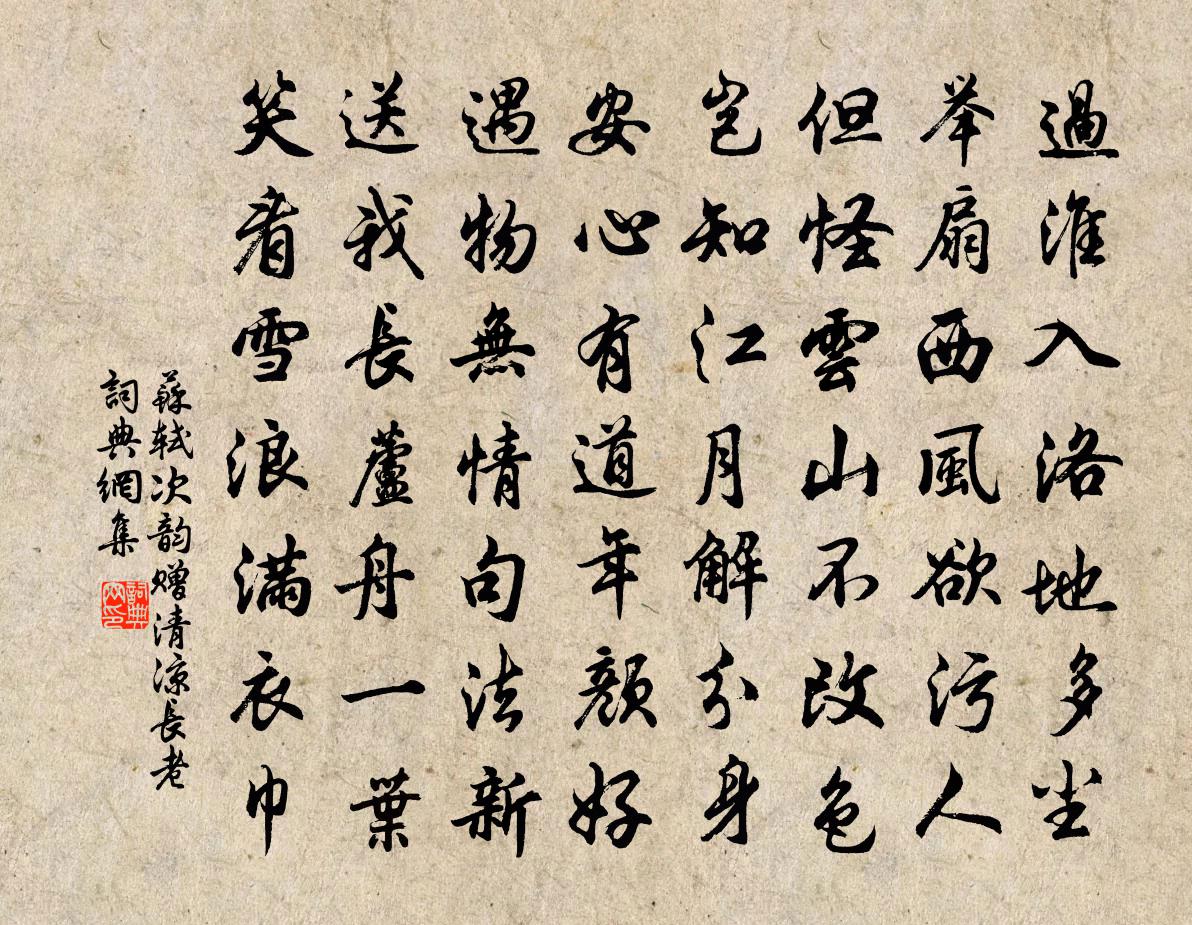 過淮入洛地多尘
举扇西風欲污人
但怪雲山不改色
岂知江月解分身
安心有道年颜好
遇物無情句法新
送我長蘆舟一葉
笑看雪浪满衣巾
蘇轼次韵赠清凉長老
詞典網集
詞典网印